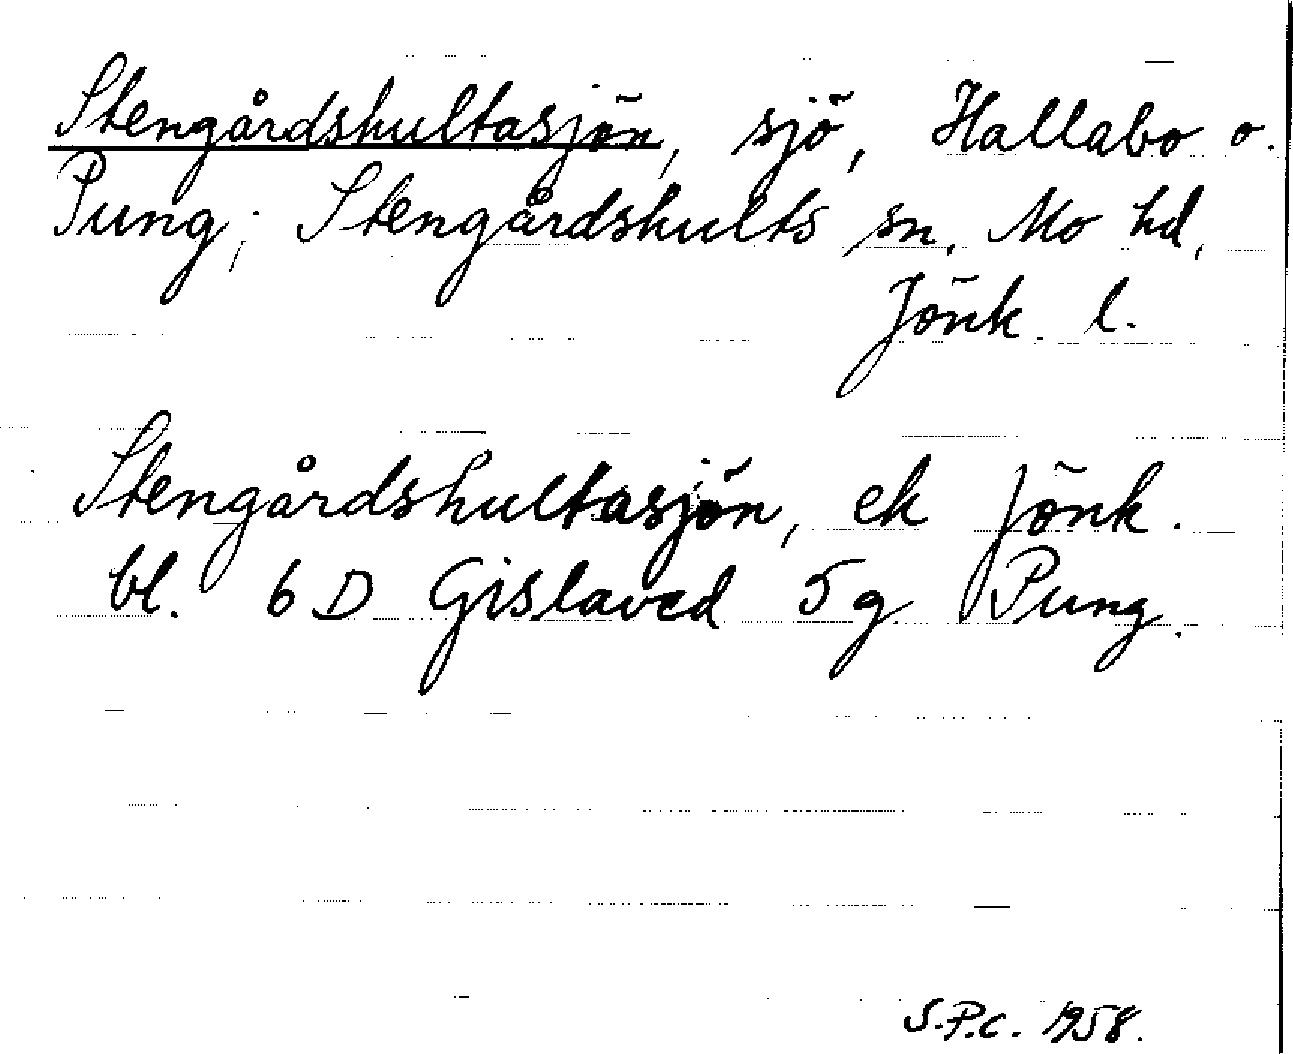 Stengårdshultasjön, sjö, Hallabo o.
Pung, Stengårdshults sn, Mo hd,
Jönk. l.
Stengårdshultasjön, ek Jönk.
bl. 6 D Gislaved 5 g Pung.
S.P.C. 1958.